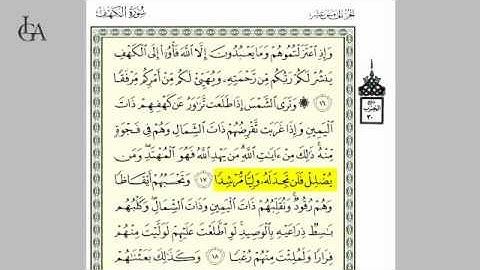 IGA
سُورَةُ الكَهْفِ
وَإِذِ ٱعْتَزَلْتُمُوهُمْ وَمَا يَعْبُدُونَ إِلَّا ٱللَّهَ فَأْوُۥٓا۟ إِلَى ٱلْكَهْفِ
يَنشُرْ لَكُمْ رَبُّكُم مِّن رَّحْمَتِهِۦ وَيُهَيِّئْ لَكُم مِّنْ أَمْرِكُم مِّرْفَقًا
١٦ ۞ وَتَرَى ٱلشَّمْسَ إِذَا طَلَعَت تَّزَٰوَرُ عَن كَهْفِهِمْ ذَاتَ
ٱلْيَمِينِ وَإِذَا غَرَبَت تَّقْرِضُهُمْ ذَاتَ ٱلشِّمَالِ وَهُمْ فِى فَجْوَةٍ
مِّنْهُ ۚ ذَٰلِكَ مِنْ ءَايَٰتِ ٱللَّهِ ۗ مَن يَهْدِ ٱللَّهُ فَهُوَ ٱلْمُهْتَدِ ۖ وَمَن
يُضْلِلْ فَلَن تَجِدَ لَهُۥ وَلِيًّا مُّرْشِدًا ١٧ وَتَحْسَبُهُمْ أَيْقَاظًا
وَهُمْ رُقُودٌ ۚ وَنُقَلِّبُهُمْ ذَاتَ ٱلْيَمِينِ وَذَاتَ ٱلشِّمَالِ ۖ وَكَلْبُهُم
بَٰسِطٌ ذِرَاعَيْهِ بِٱلْوَصِيدِ ۚ لَوِ ٱطَّلَعْتَ عَلَيْهِمْ لَوَلَّيْتَ مِنْهُمْ
فِرَارًا وَلَمُلِئْتَ مِنْهُمْ رُعْبًا ١٨ وَكَذَٰلِكَ بَعَثْنَٰهُمْ